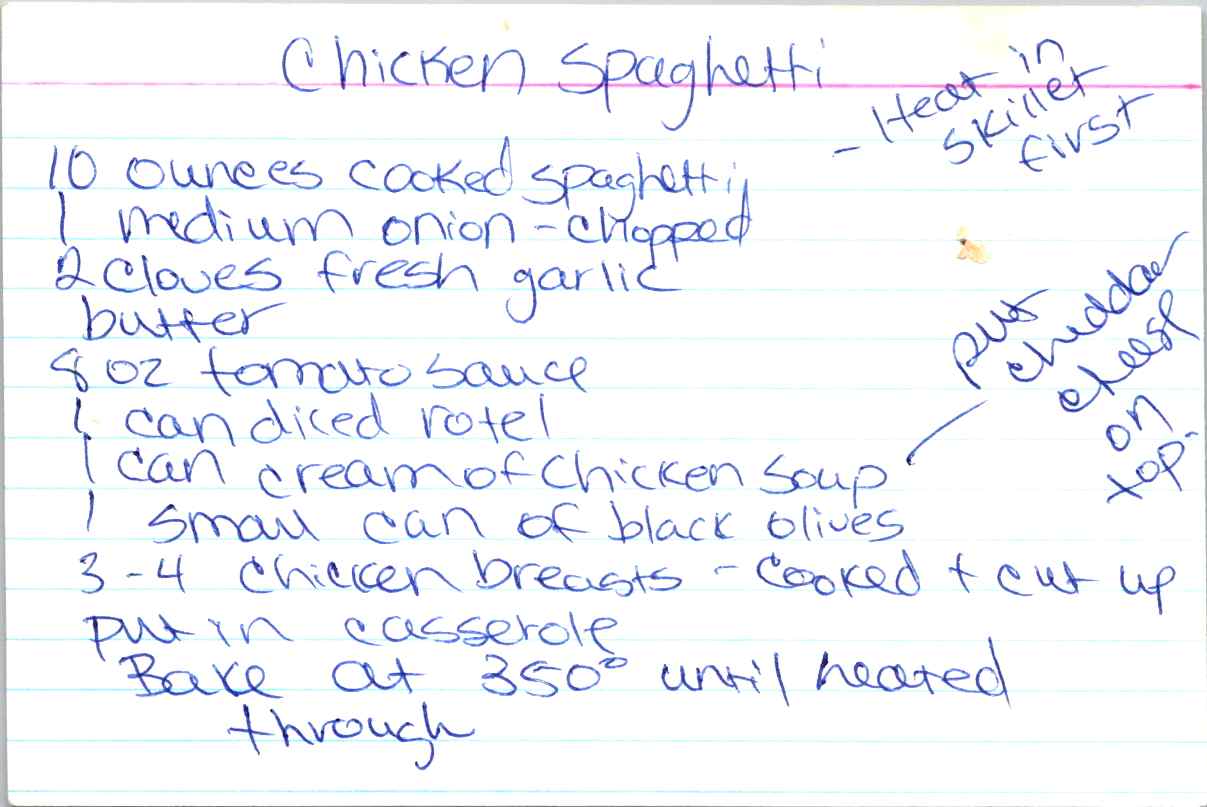 Chicken Spaghetti
- Heat in
skillet
first
10 ounces cooked spaghetti
1 medium onion - chopped
2 cloves fresh garlic
butter
8 oz tomato sauce
1 can diced rotel
1 can cream of chicken soup
put
cheddar
cheese
on
top.
1 small can of black olives
3-4 chicken breasts - cooked + cut up
put in casserole
Bake at 350° until heated
through